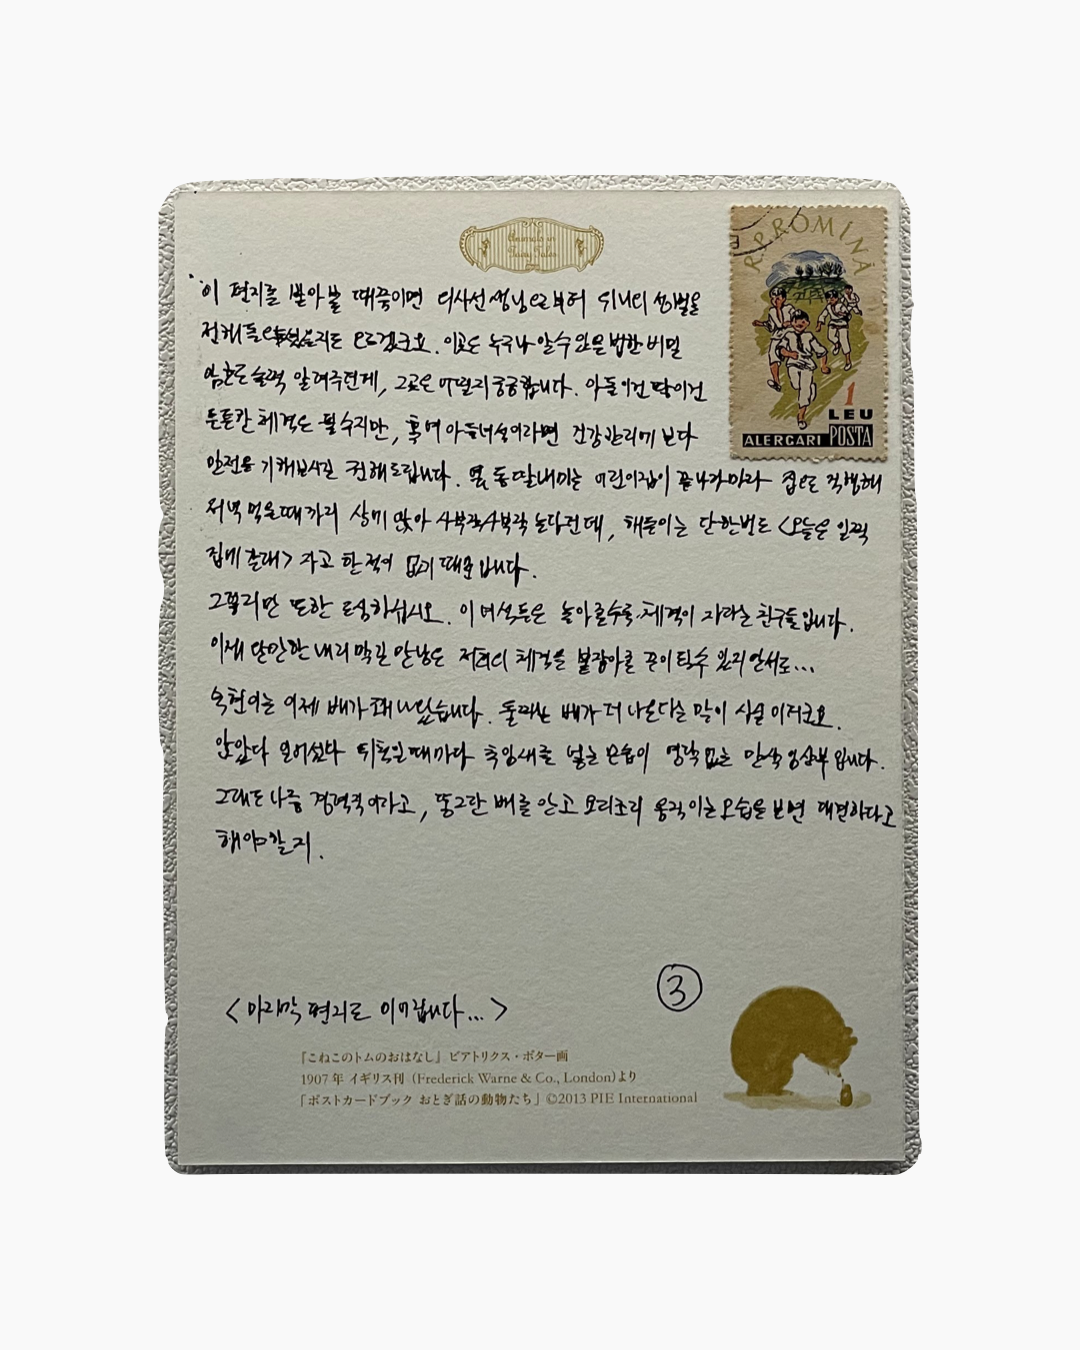 Animals in
Fairy Tales
R.P. ROMÎNĂ
1
LEU
ALERGARI POSTA
이 편지를 받아볼 때쯤이면 의사선생님으로부터 주니어 성별을
전해 들으셨을지도 모르겠군요. 이곳은 누구나 알 수 있을 법한 비밀
암호로 슬쩍 알려주던데, 그곳은 어떨지 궁금합니다. 아들이건 딸이건
튼튼한 체력은 필수지만, 혹여 아들녀석이라면 건강관리에 보다
만전을 기해보시길 권해드립니다. 옆 동 딸내미는 어린이집이 끝나자마자 집으로 직행해
저녁 먹을 때까지 상에 앉아 사부작사부작 논다던데, 해든이는 단 한번도 <오늘은 일찍
집에 갈래> 라고 한 적이 없기 때문입니다.
그렇지만 또한 조심하십시오. 이 녀석들은 놀아줄수록 체력이 자라는 친구들입니다.
이제 만만한 내리막길만 남은 저희의 체력을 붙잡아줄 끈이 턱수 있지 않서로...
숙현이는 이제 배가 꽤 나왔습니다. 둘째는 배가 더 나온다는 말이 사실이더군요.
앉았다 일어섰다 뒤척일 때마다 추임새를 넣는 모습이 영락없는 만삭 임산부입니다.
그래도 나름 경력직이라고, 동그란 배를 안고 요리조리 움직이는 모습을 보면 대견하다고
해야할지.
<마지막 편지로 이어집니다...>
3
『こねこのトムのおはなし』 ビアトリクス・ポター画
1907年 イギリス刊 (Frederick Warne & Co., London)より
「ポストカードブック おとぎ話の動物たち」 ©2013 PIE International